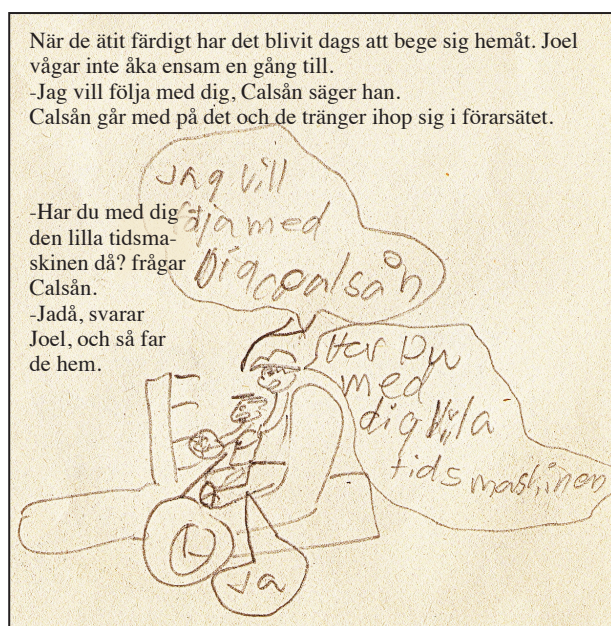 När de ätit färdigt har det blivit dags att bege sig hemåt. Joel
vågar inte åka ensam en gång till.
-Jag vill följa med dig, Calsån säger han.
Calsån går med på det och de tränger ihop sig i förarsätet.
-Har du med dig
den lilla tidsma-
skinen då? frågar
Calsån.
-Jadå, svarar
Joel, och så far
de hem.
Jag Vill
följa med
Dig calsån
Har Du
med
dig lilla
tids maskinen
Ja